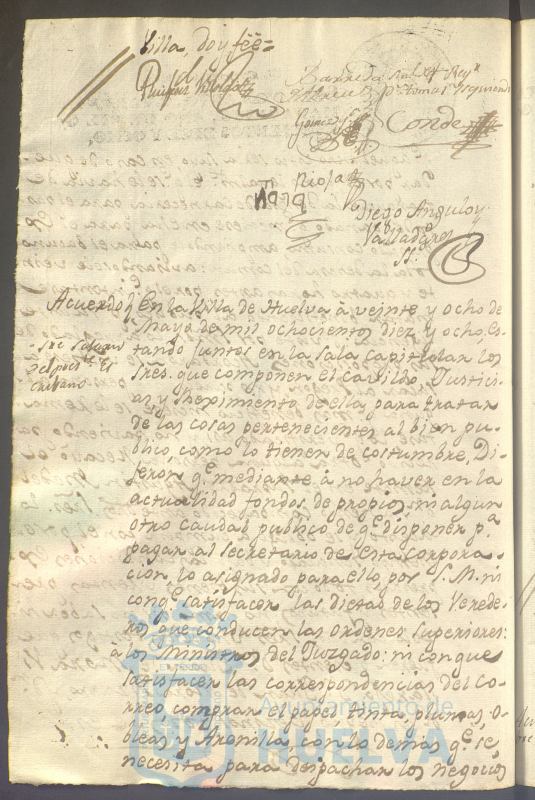 Villa, doy feé =
Conde
Rioja
Diego Anguloy
Valladares
Acuerdo En la Villa de Huelva à veinte y ocho de
Mayo de mil ochocientos diez y ocho, es-
tando juntos en la Sala capitular los
Sres. que componen el Cavildo, Justici-
as y Regimiento de ella para tratar
de las cosas pertenecientes al bien pu-
blico, como lo tienen de costumbre, Di-
jeron qe. mediante à no haver en la
actualidad fondos de propios, ni algun
otro caudal publico de qe. disponer pa.
pagar al Secretario de esta corpora-
cion, lo asignado para ello por S. M. ni
con qe. satisfacer las dietas de los Verede-
ros, que conducen las ordenes superiores:
à los Ministros del Juzgado: ni con que
satisfacer las correspondencias del Co-
rreo, comprar el papel, tinta, plumas, o-
bleas, y Arenilla, con lo demas qe. se
necesita para despachar los negocios
Ayuntamiento de
HUELVA